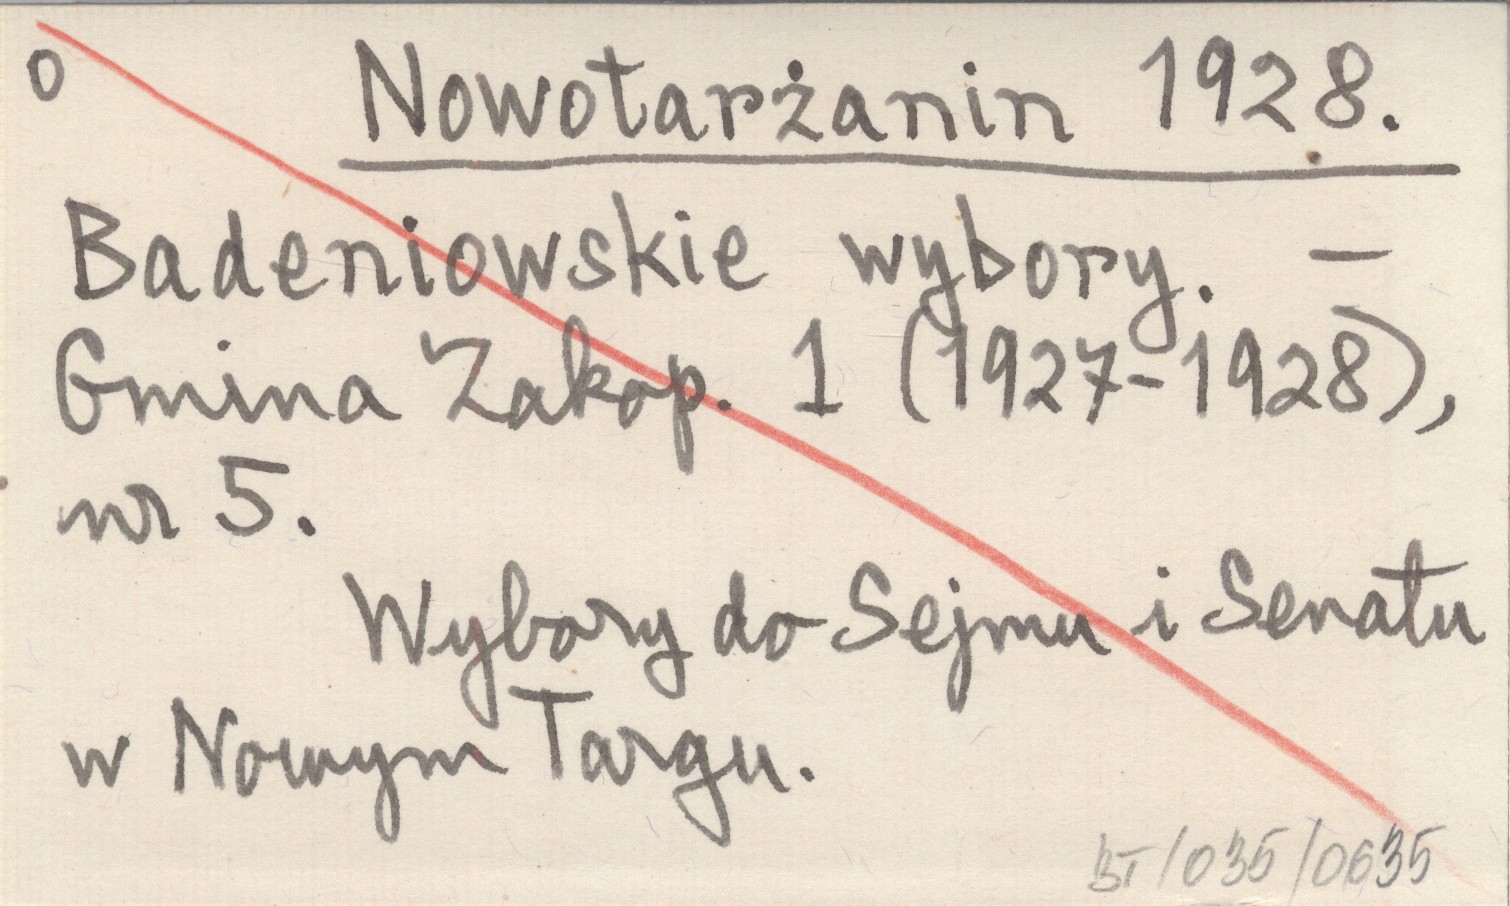 o
Nowotarżanin 1928.
Badeniowskie wybory. —
Gmina Zakop. 1 (1927-1928),
nr 5.
Wybory do Sejmu i Senatu
w Nowym Targu.
BT/035/0635